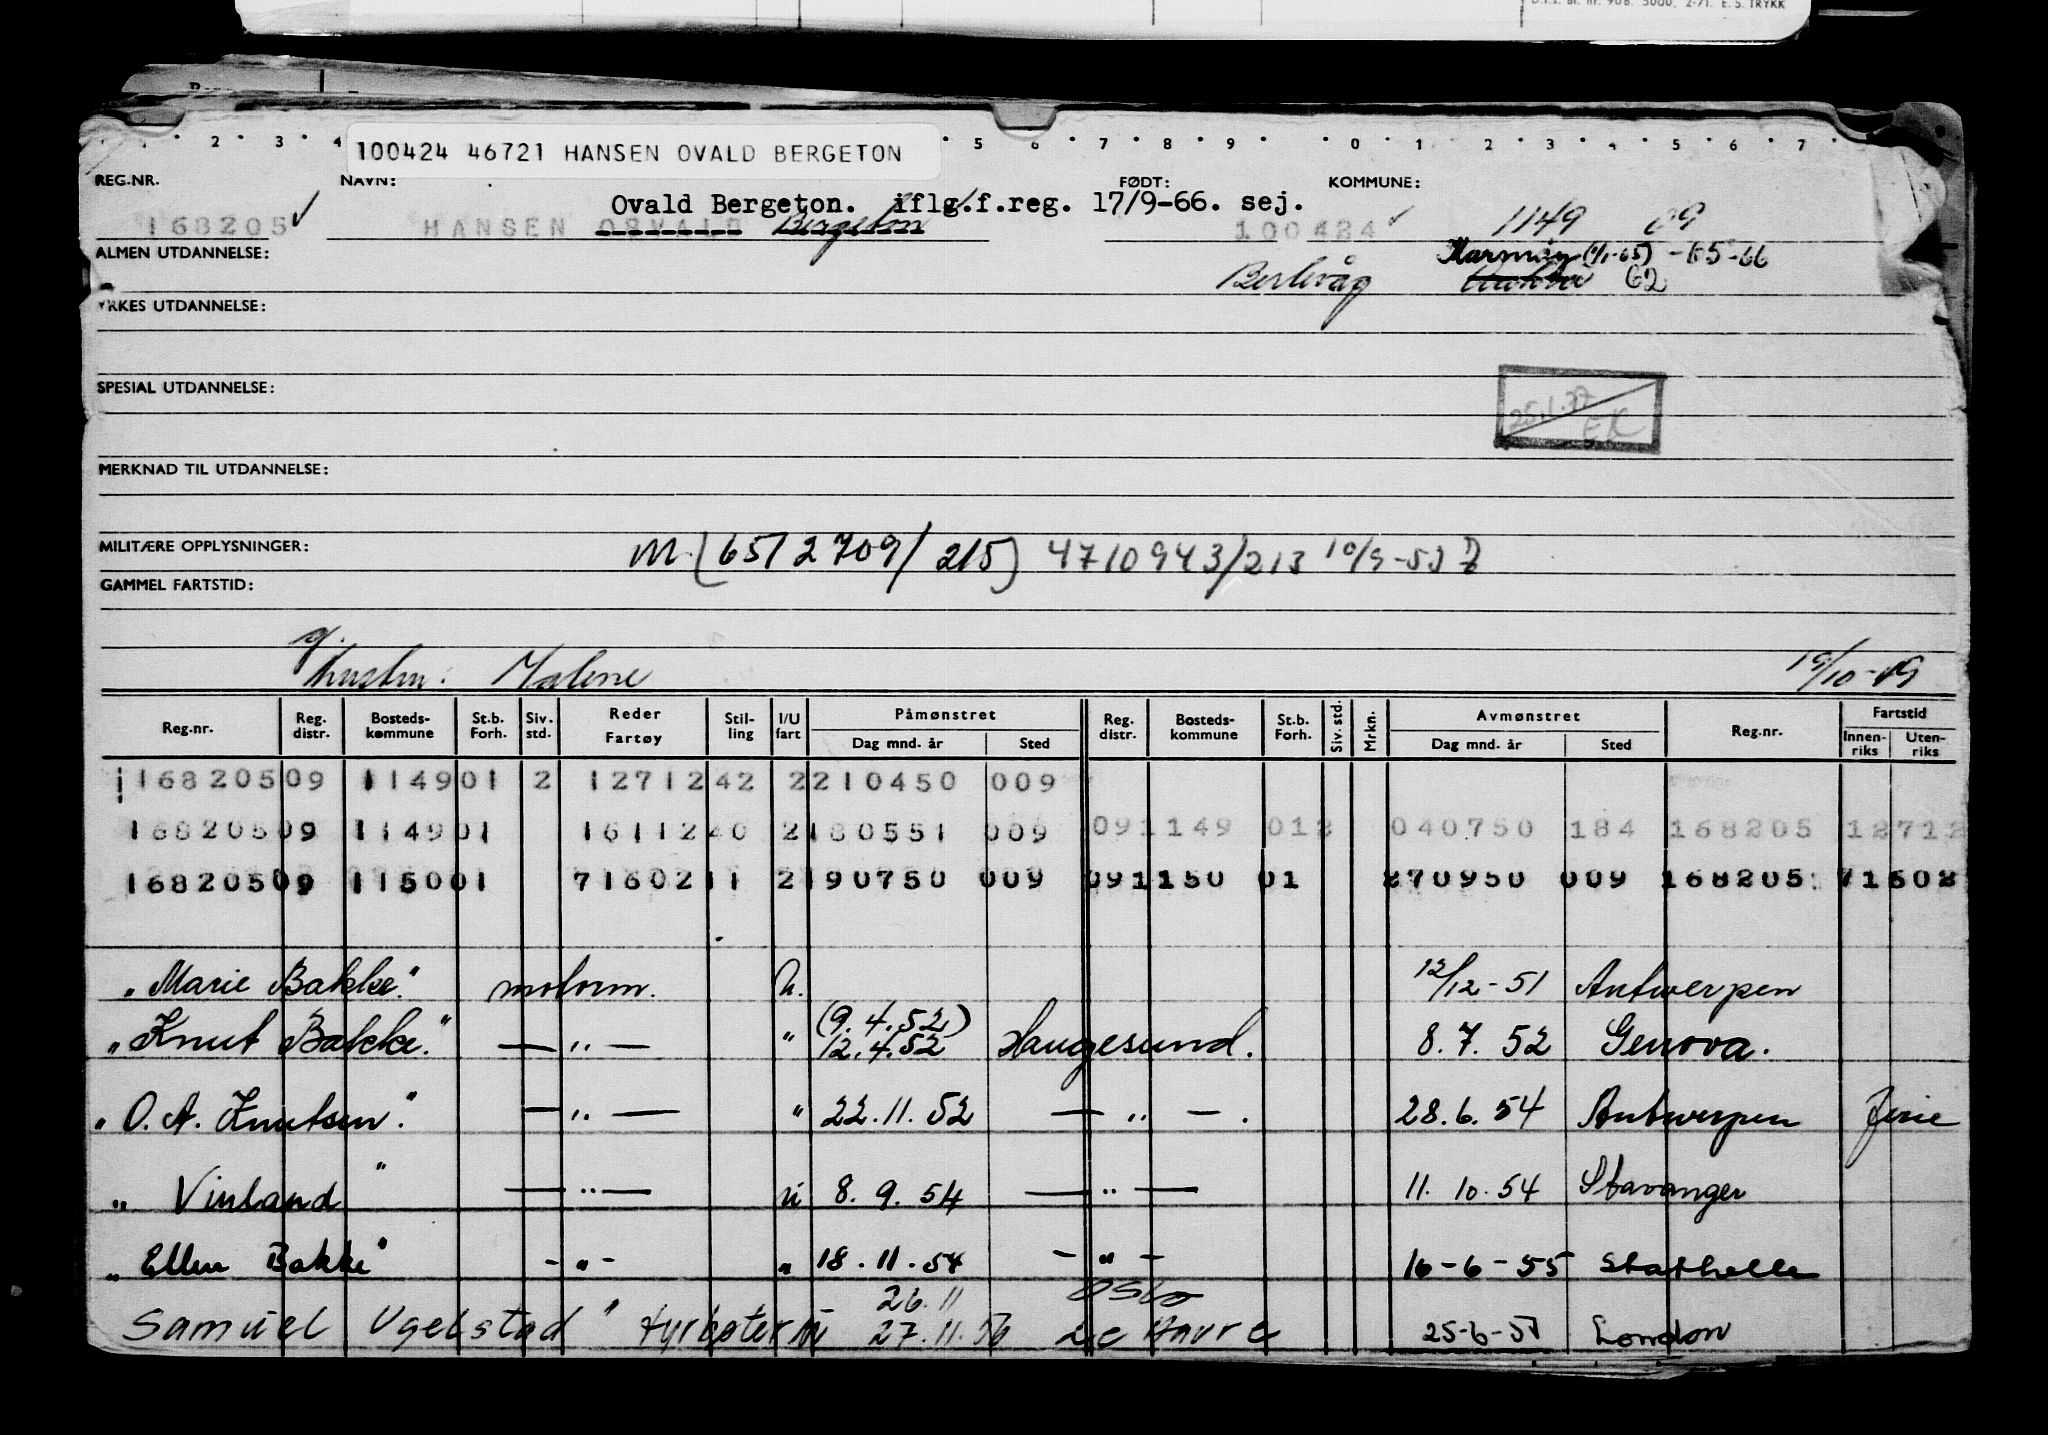 D.f.s. Bl. nr. 908. 5000. 2-71. E. S. TRYKK
2 3 4 5 6 7 8 9 0 1 2 3 4 5 6 7
100424 46721 HANSEN OVALD BERGETON
REG.NR. NAVN: FØDT: KOMMUNE:
Ovald Bergeton. iflg.f.reg. 17/9-66. sej.
168205 ✓ HANSEN OSVALD Bergeton 100424 ✓ 1149 09
ALMEN UTDANNELSE: Karmøy (1/1-65) - 15-66
Berlevåg 62
YRKES UTDANNELSE:
SPESIAL UTDANNELSE:
EK
MERKNAD TIL UTDANNELSE:
MILITÆRE OPPLYSNINGER: M. (6512709/215) 4710943/213 10/9-53
GAMMEL FARTSTID:
g.
hustru: Malene 19/10-19
Reg.nr. Reg. distr. Bosteds-kommune St.b. Forh. Siv. std. Reder Fartøy Stil-ling I/U fart Påmønstret Dag mnd. år Sted Reg. distr. Bosteds-kommune St.b. Forh. Siv. std. Mrkn. Avmønstret Dag mnd. år Sted Reg.nr. Fartstid Innen-riks Uten-riks
168205 09 1149 01 2 12712 42 2 210450 009
168205 09 1149 01 16112 40 2 180551 009 09 1149 01 2 040750 184 168205 12712
168205 09 1150 01 71602 11 2 190750 009 09 1150 01 270950 009 168205 71602
"Marie Bakke" motorm. u. 12/12-51 Antwerpen
(9.4.52)
"Knut Bakke" — " — " 12.4.52 Haugesund. 8.7.52 Genova.
"O. A. Knutsen" — " — " 22.11.52 — " — . 28.6.54 Antwerpen ferie
"Vinland" — " — u 8.9.54 — " — 11.10.54 Stavanger
"Ellen Bakke" - " - " 18.11.54 - " - 16-6-55 Stathelle
26.11 Oslo
Samuel Ugelstad" fyrbøter u 27.11.56 Le Havre 25-6-57 London